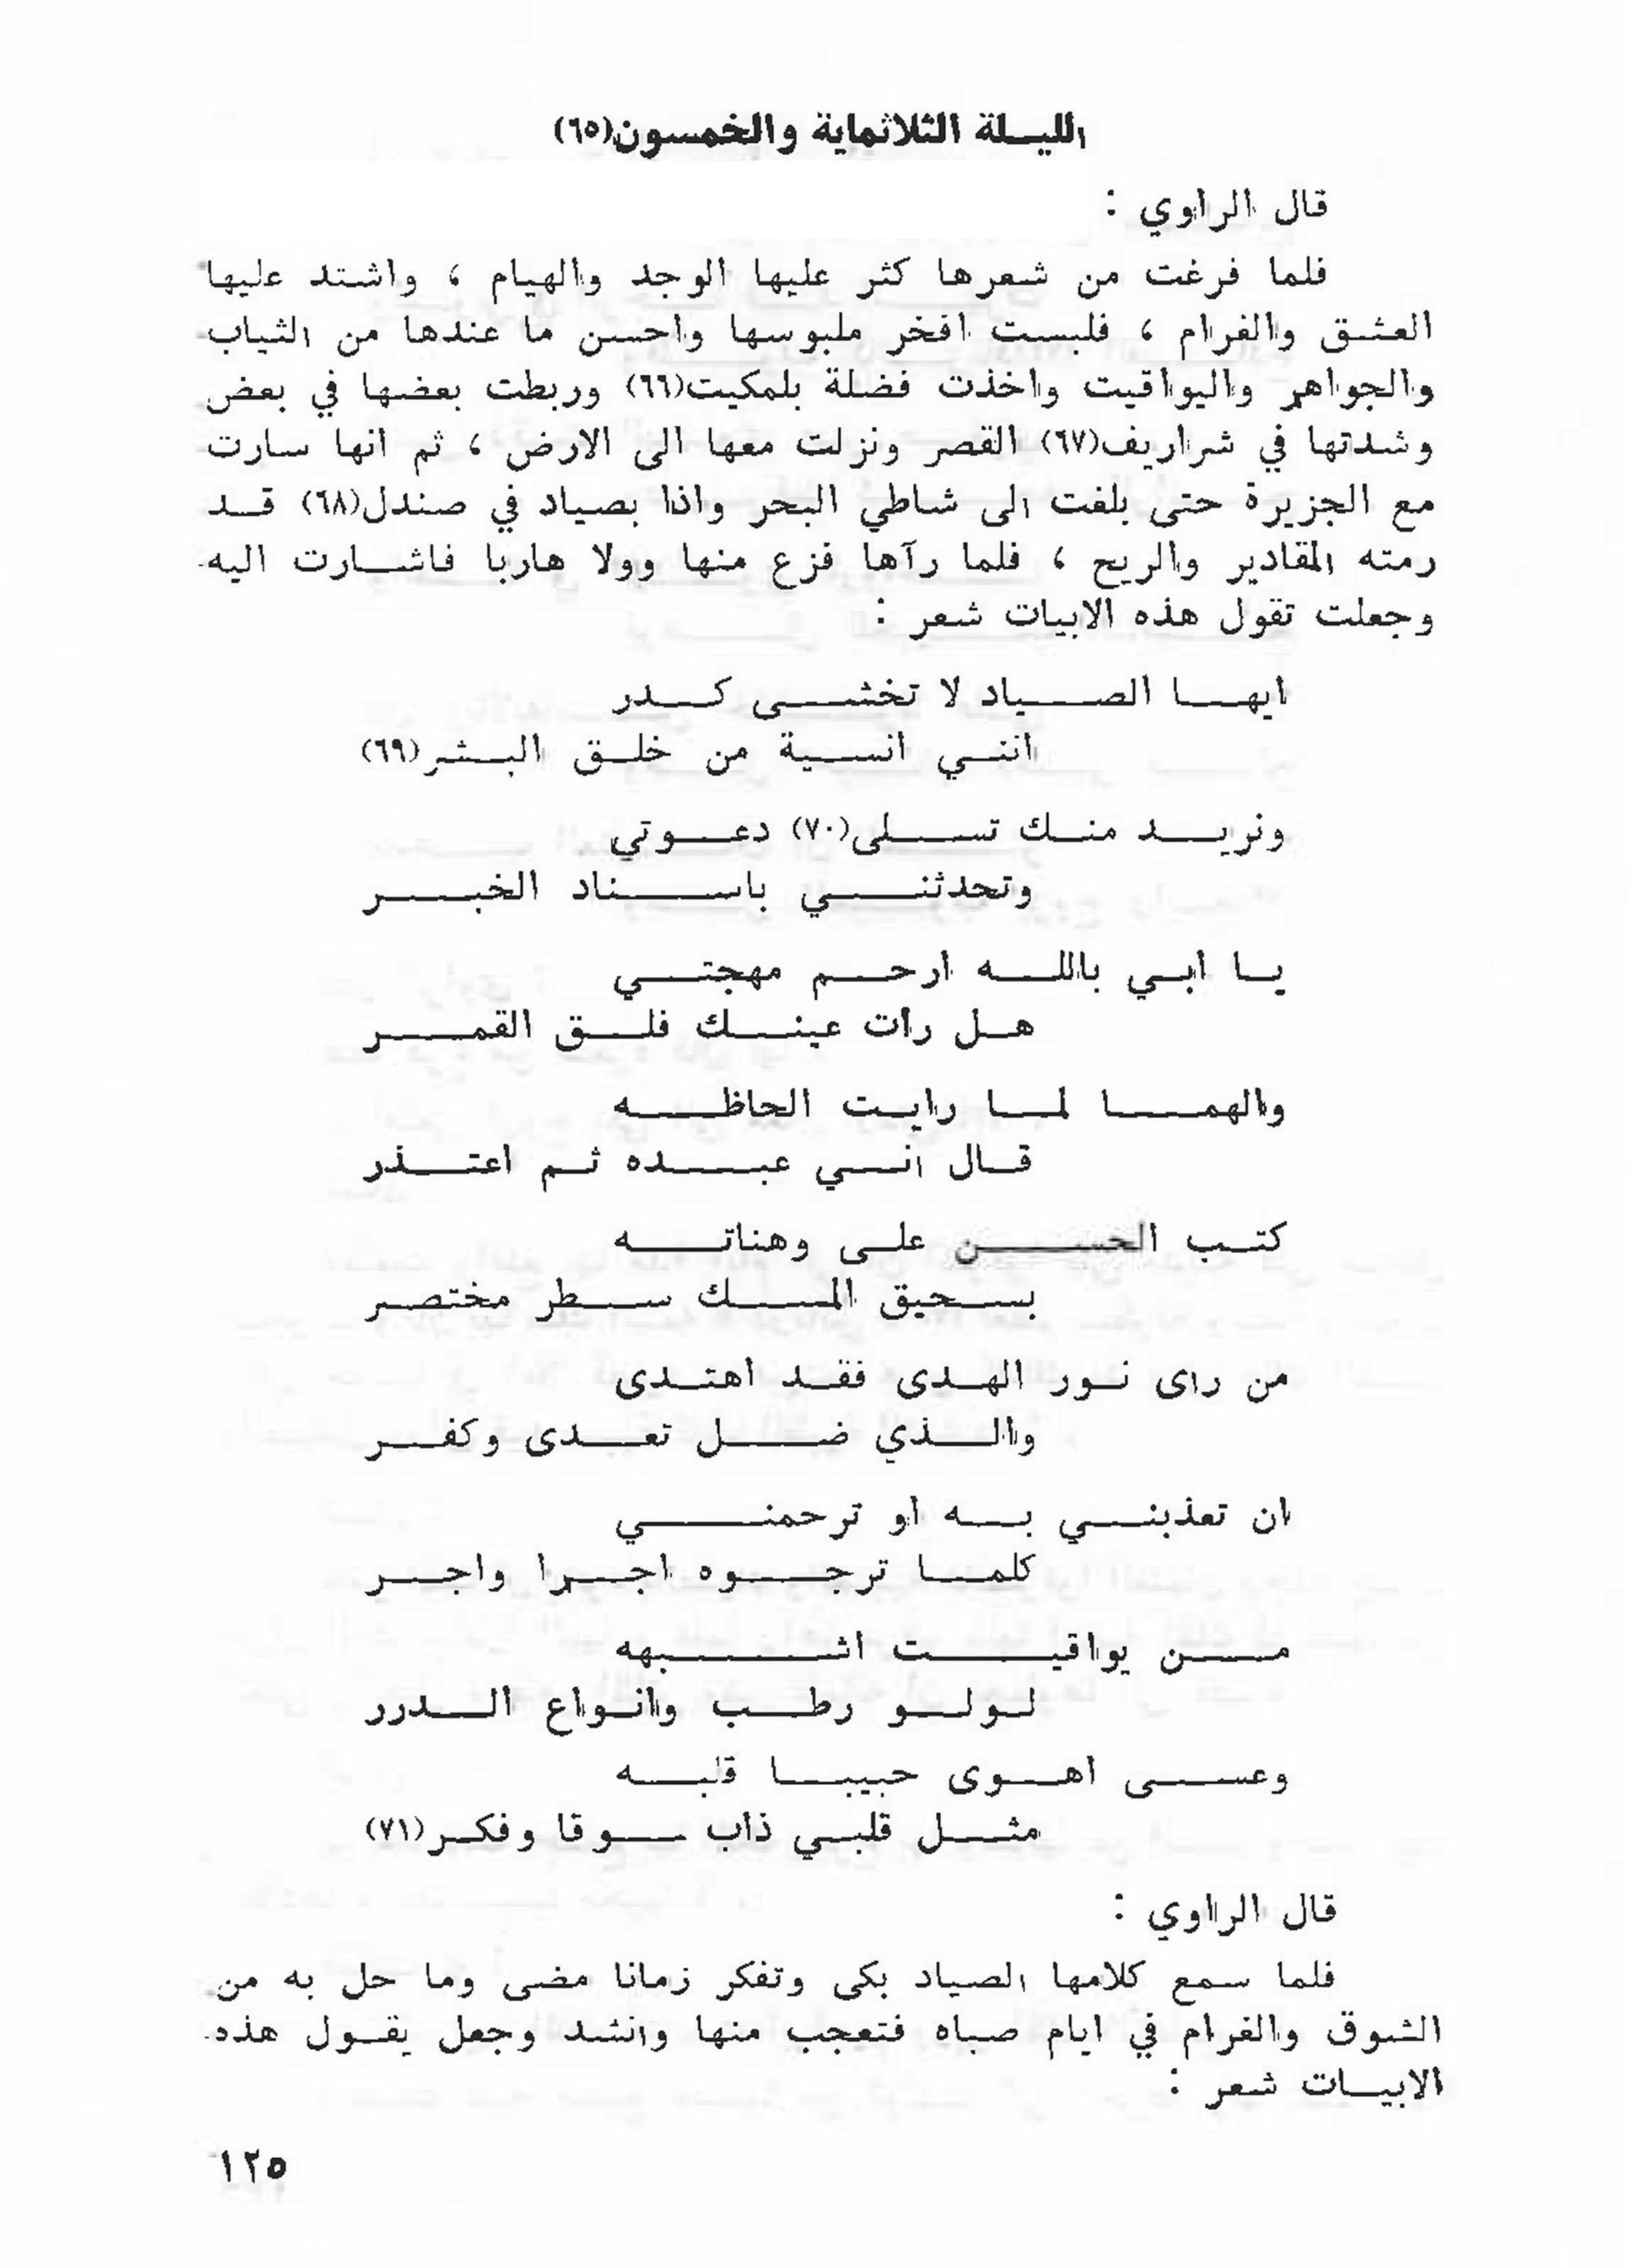 الليلة الثلاثماية والخمسون(٦٥)
قال الراوي :
فلما فرغت من شعرها كثر عليها الوجد والهيام ، واشتد عليها
العشق والغرام ، فلبست افخر ملبوسها واحسن ما عندها من الثياب
والجواهر واليواقيت واخذت فضلة بلمكيت(٦٦) وربطت بعضها في بعض
وشدتها في شراريف(٦٧) القصر ونزلت معها الى الارض ، ثم انها سارت
مع الجزيرة حتى بلغت الى شاطي البحر واذا بصياد في صندل(٦٨) قد
رمته المقادير والريح ، فلما رآها فزع منها وولا هاربا فاشارت اليه
وجعلت تقول هذه الابيات شعر :
ايها الصياد لا تخشى كدر
انني انسية من خلق البشر(٦٩)
ونريد منك تسلى(٧٠) دعوتي
وتحدثني باسناد الخبر
يا ابي بالله ارحم مهجتي
هل رأت عينك فلق القمر
والهما لما رايت الحاظه
قال اني عبده ثم اعتذر
كتب الحسن على وهناته
بسحيق المسك سطر مختصر
من راى نور الهدى فقد اهتدى
والذي ضل تعدى وكفر
ان تعذبني به او ترحمني
كلما ترجوه اجرا واجر
من يواقيت اشبهه
لولو رطب وانواع الدرر
وعسى اهوى حبيبا قلبه
مثل قلبي ذاب سوقا وفكر(٧١)
قال الراوي :
فلما سمع كلامها الصياد بكى وتفكر زمانا مضى وما حل به من
الشوق والغرام في ايام صباه فتعجب منها وانشد وجعل يقول هذه
الابيات شعر :
١٢٥